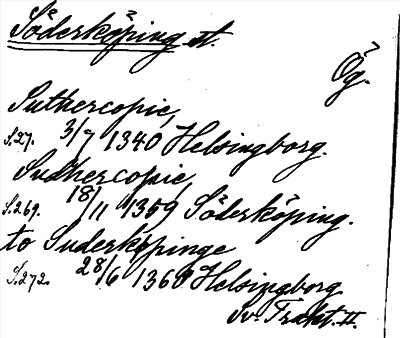 Söderköping st.
Ög.
Suthercopie,
S.27. 3/7 1340 Helsingborg.
Sudhercopie,
S.269. 18/11 1359 Söderköping.
to Suderköpinge
S.272. 28/6 1360 Helsingborg
Sv. Trakt. II.